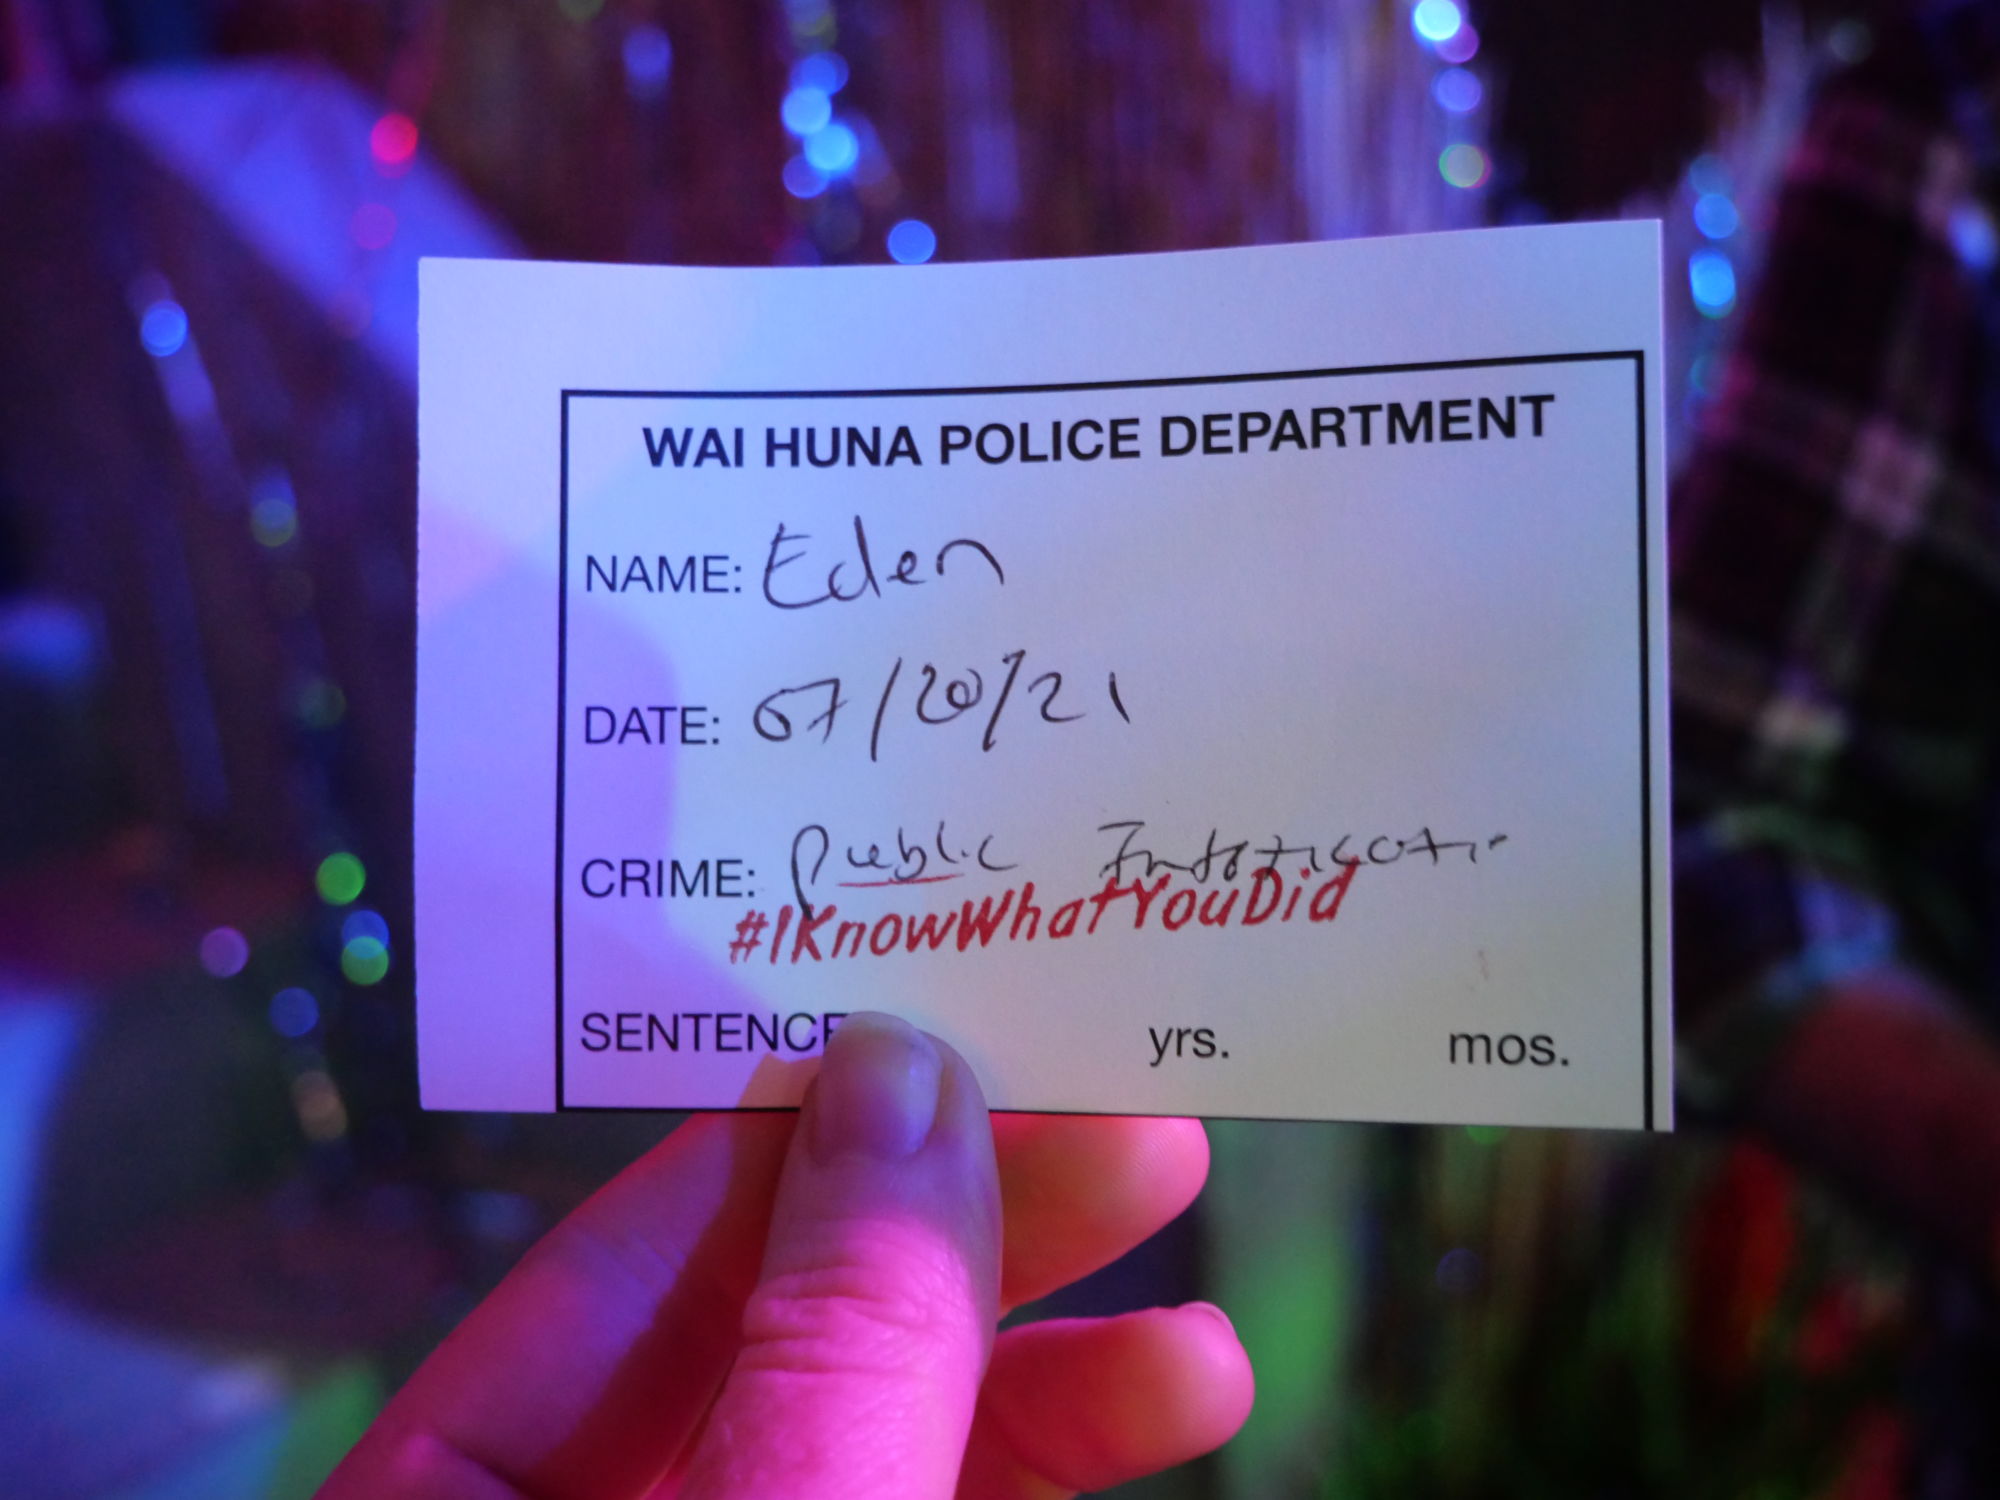 WAI HUNA POLICE DEPARTMENT
NAME: Eden
DATE: 07/20/21
CRIME: Public Intoxicatio
#IKnowWhatYouDid
SENTENCE yrs. mos.